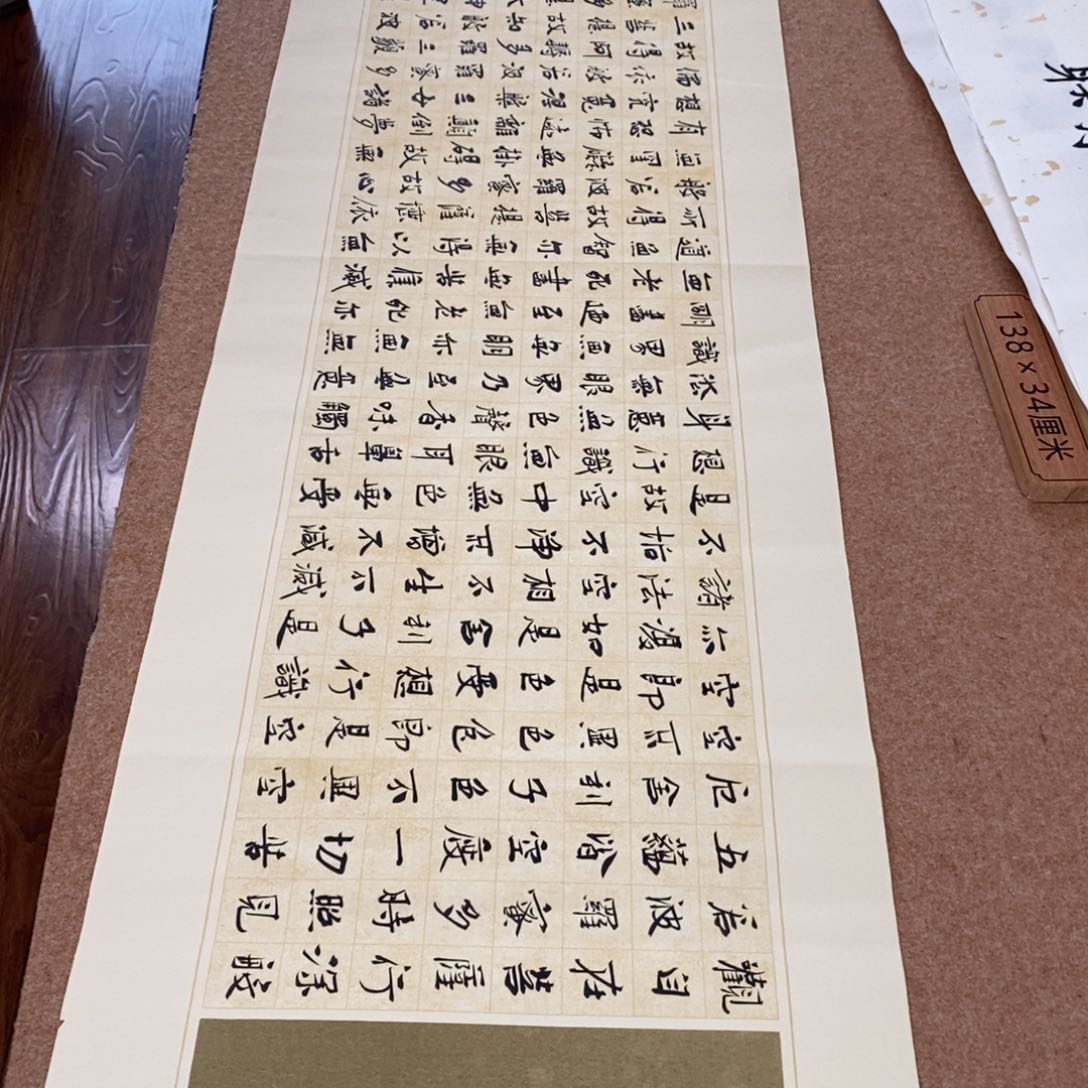 觀自在菩薩行深般
若波羅蜜多時照見
五蘊皆空度一切苦
厄舍利子色不異空
空不異色色即是空
空即是色受想行識
亦復如是舍利子是
諸法空相不生不滅
不垢不淨不增不減
是故空中無色無受
想行識無眼耳鼻舌
身意無色聲香味觸
法無眼界乃至無意
識界無無明亦無無
明盡乃至無老死亦
無老死盡無苦集滅
道無智亦無得以無
所得故菩提薩埵依
般若波羅蜜多故心
無罣礙無罣礙故無
有恐怖遠離顛倒夢
想究竟涅槃三世諸
佛依般若波羅蜜多
故得阿耨多羅三藐
三菩提故知般若波
138×34厘米